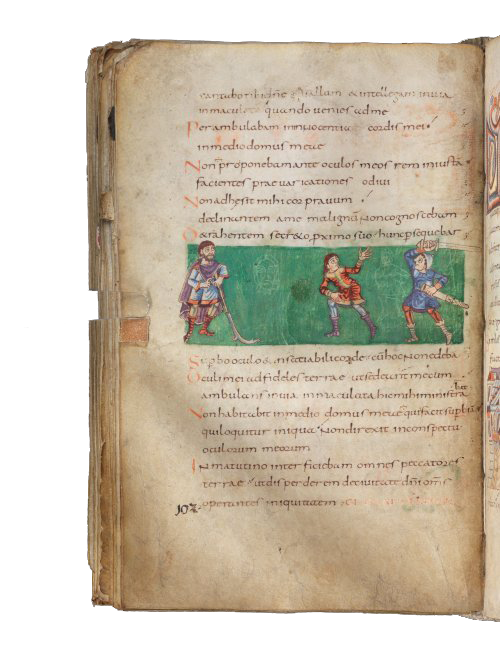 cantabo tibi dñe psallam & intellegam in uia
inmaculata quando uenies ad me
Perambulabam in innocentia cordis mei
in medio domus meae
Non proponebam ante oculos meos rem iniustã
facientes praeuaricationes odiui
Non adhesit mihi cor prauum
declinantem a me malignũ non cognoscebam
secr&o pximo suo hunc persequebar
Superbo oculo & insatiabili corde cũ hoc non edebã
Oculi mei ad fideles terrae ut sedeant mecum
ambulans in uia inmaculata hic mihi ministra
bat
Non habitabit in medio domus meae qui facit supbiã
qui loquitur iniqua Non direxit in conspectu
oculorum meorum
In matutino interficiebam omnes peccatores
terrae ut disperderem de ciuitate dñi om̃s
102 operantes iniquitatem